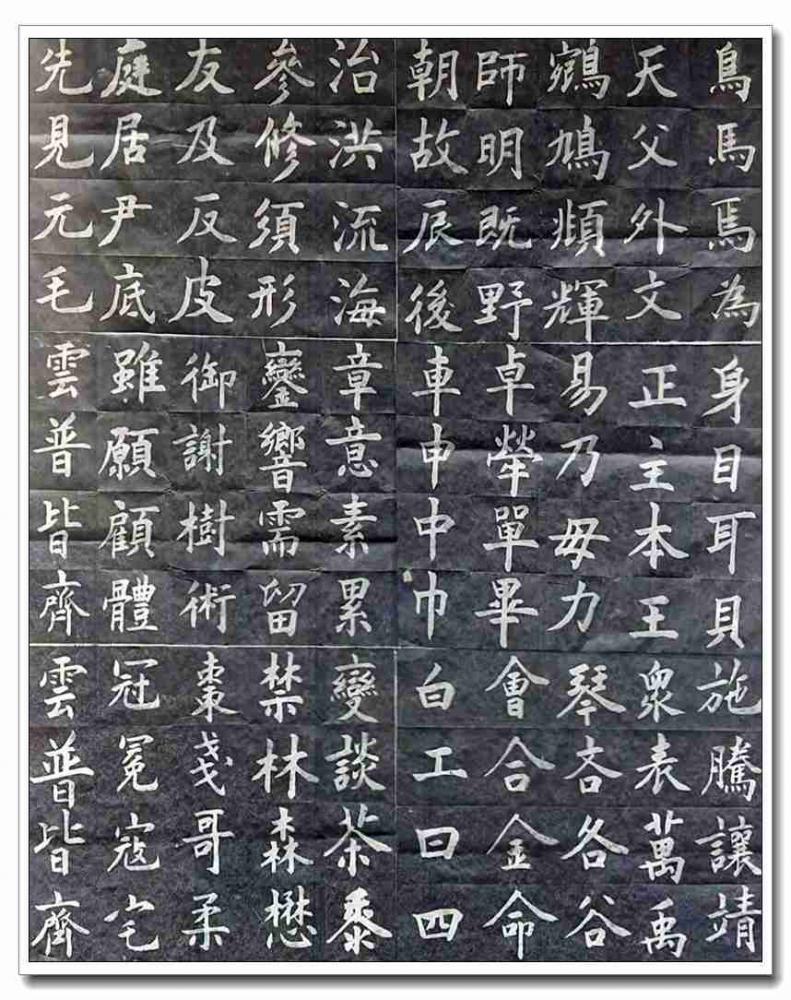 鳥馬焉為身目耳貝施騰讓靖
天父外文正主本王衆表萬禹
鵷鳩頫輝易乃毋力琴吝各谷
師明既野卓犖單畢會合金命
朝故辰後車申中巾白工曰四
治洪流海章意素累變談茶黍
參修須形鑾響需留禁林森懋
友及反皮御謝樹術棗戔哥柔
庭居尹底雖願顧體冠冕寇宅
先見元毛雲普皆齊雲普皆齊